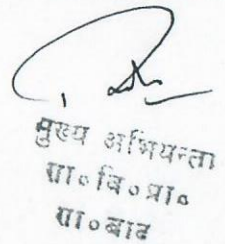 मुख्य अभियन्ता
गा०वि०प्रा०
गा०बाद